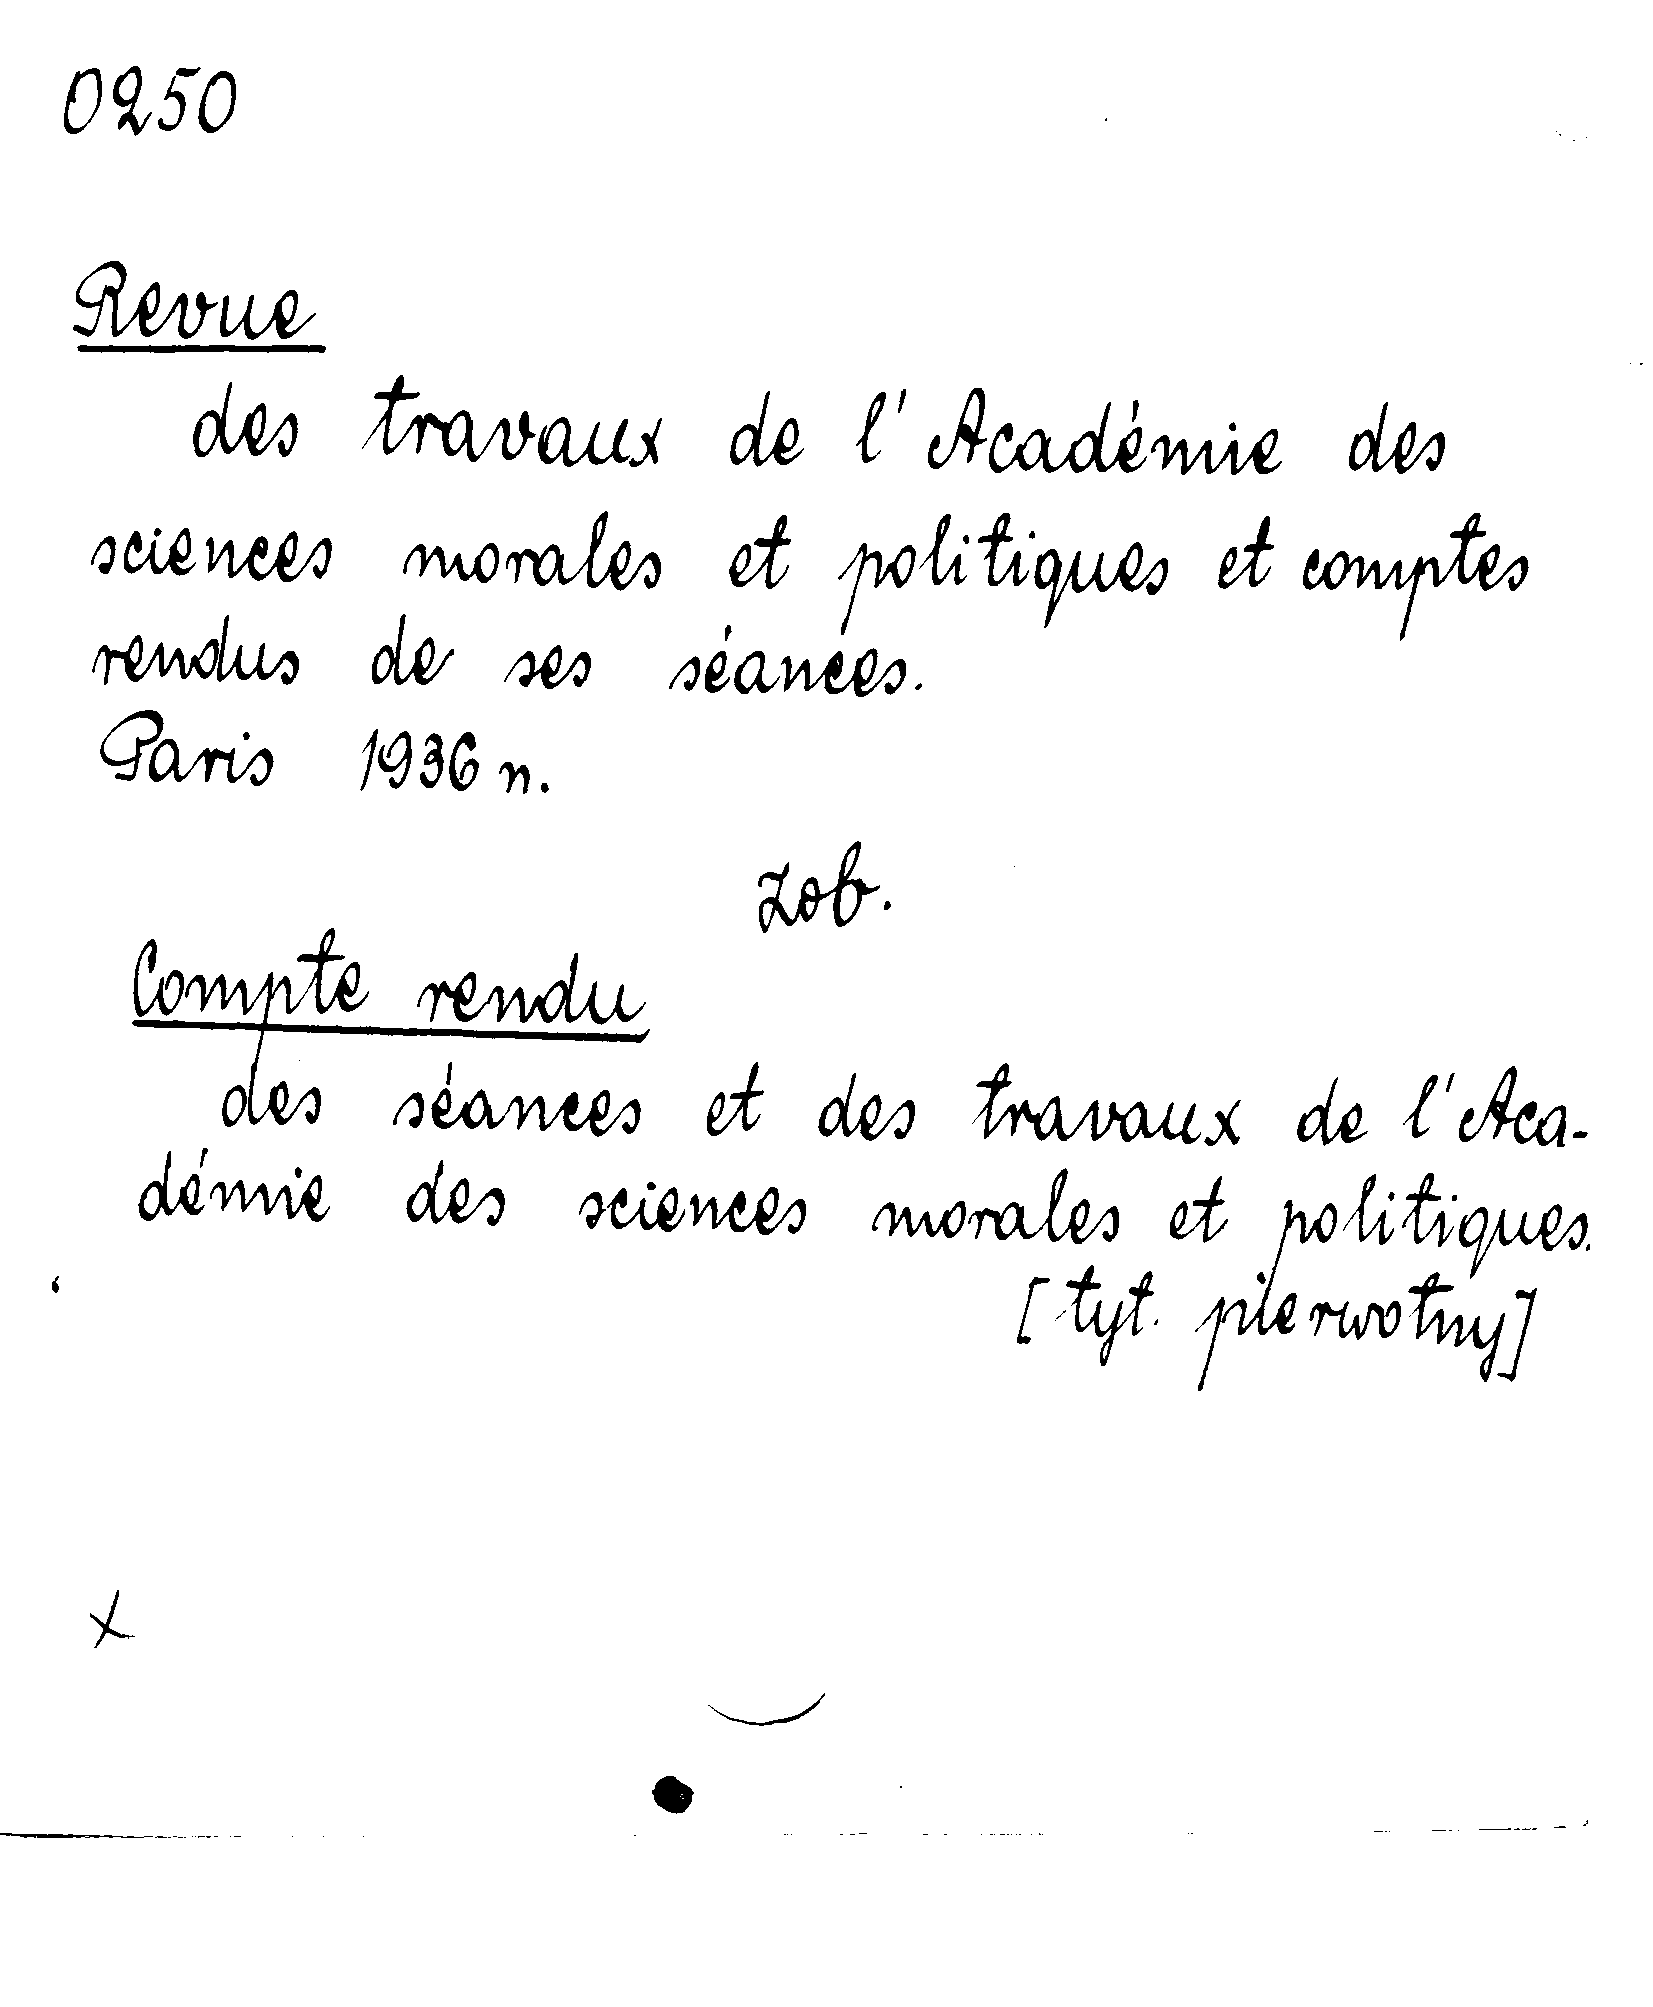 0250
Revue
des travaux de l'Académie des
sciences morales et politiques et comptes
rendus de ses séances.
Paris 1936 n.
zob.
Compte rendu
des séances et des travaux de l'Aca-
démie des sciences morales et politiques.
[tyt. pierwotny]
x